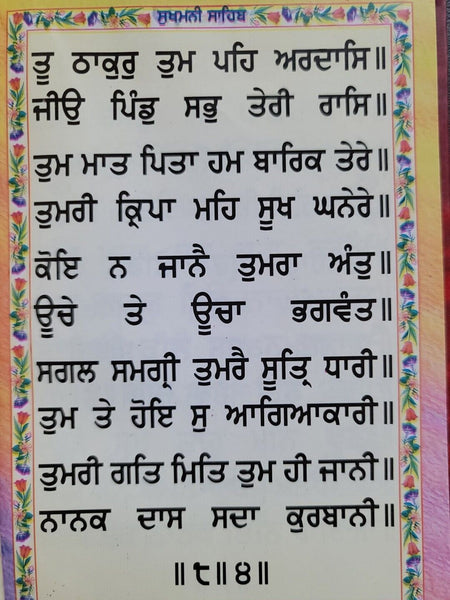 ਸੁਖਮਨੀ ਸਾਹਿਬ
ਤੂ ਠਾਕੁਰੁ ਤੁਮ ਪਹਿ ਅਰਦਾਸਿ॥
ਜੀਉ ਪਿੰਡੁ ਸਭੁ ਤੇਰੀ ਰਾਸਿ॥
ਤੁਮ ਮਾਤ ਪਿਤਾ ਹਮ ਬਾਰਿਕ ਤੇਰੇ॥
ਤੁਮਰੀ ਕ੍ਰਿਪਾ ਮਹਿ ਸੂਖ ਘਨੇਰੇ॥
ਕੋਇ ਨ ਜਾਨੈ ਤੁਮਰਾ ਅੰਤੁ॥
ਊਚੇ ਤੇ ਊਚਾ ਭਗਵੰਤ॥
ਸਗਲ ਸਮਗ੍ਰੀ ਤੁਮਰੈ ਸੂਤ੍ਰਿ ਧਾਰੀ॥
ਤੁਮ ਤੇ ਹੋਇ ਸੁ ਆਗਿਆਕਾਰੀ॥
ਤੁਮਰੀ ਗਤਿ ਮਿਤਿ ਤੁਮ ਹੀ ਜਾਨੀ॥
ਨਾਨਕ ਦਾਸ ਸਦਾ ਕੁਰਬਾਨੀ॥
॥੮॥੪॥